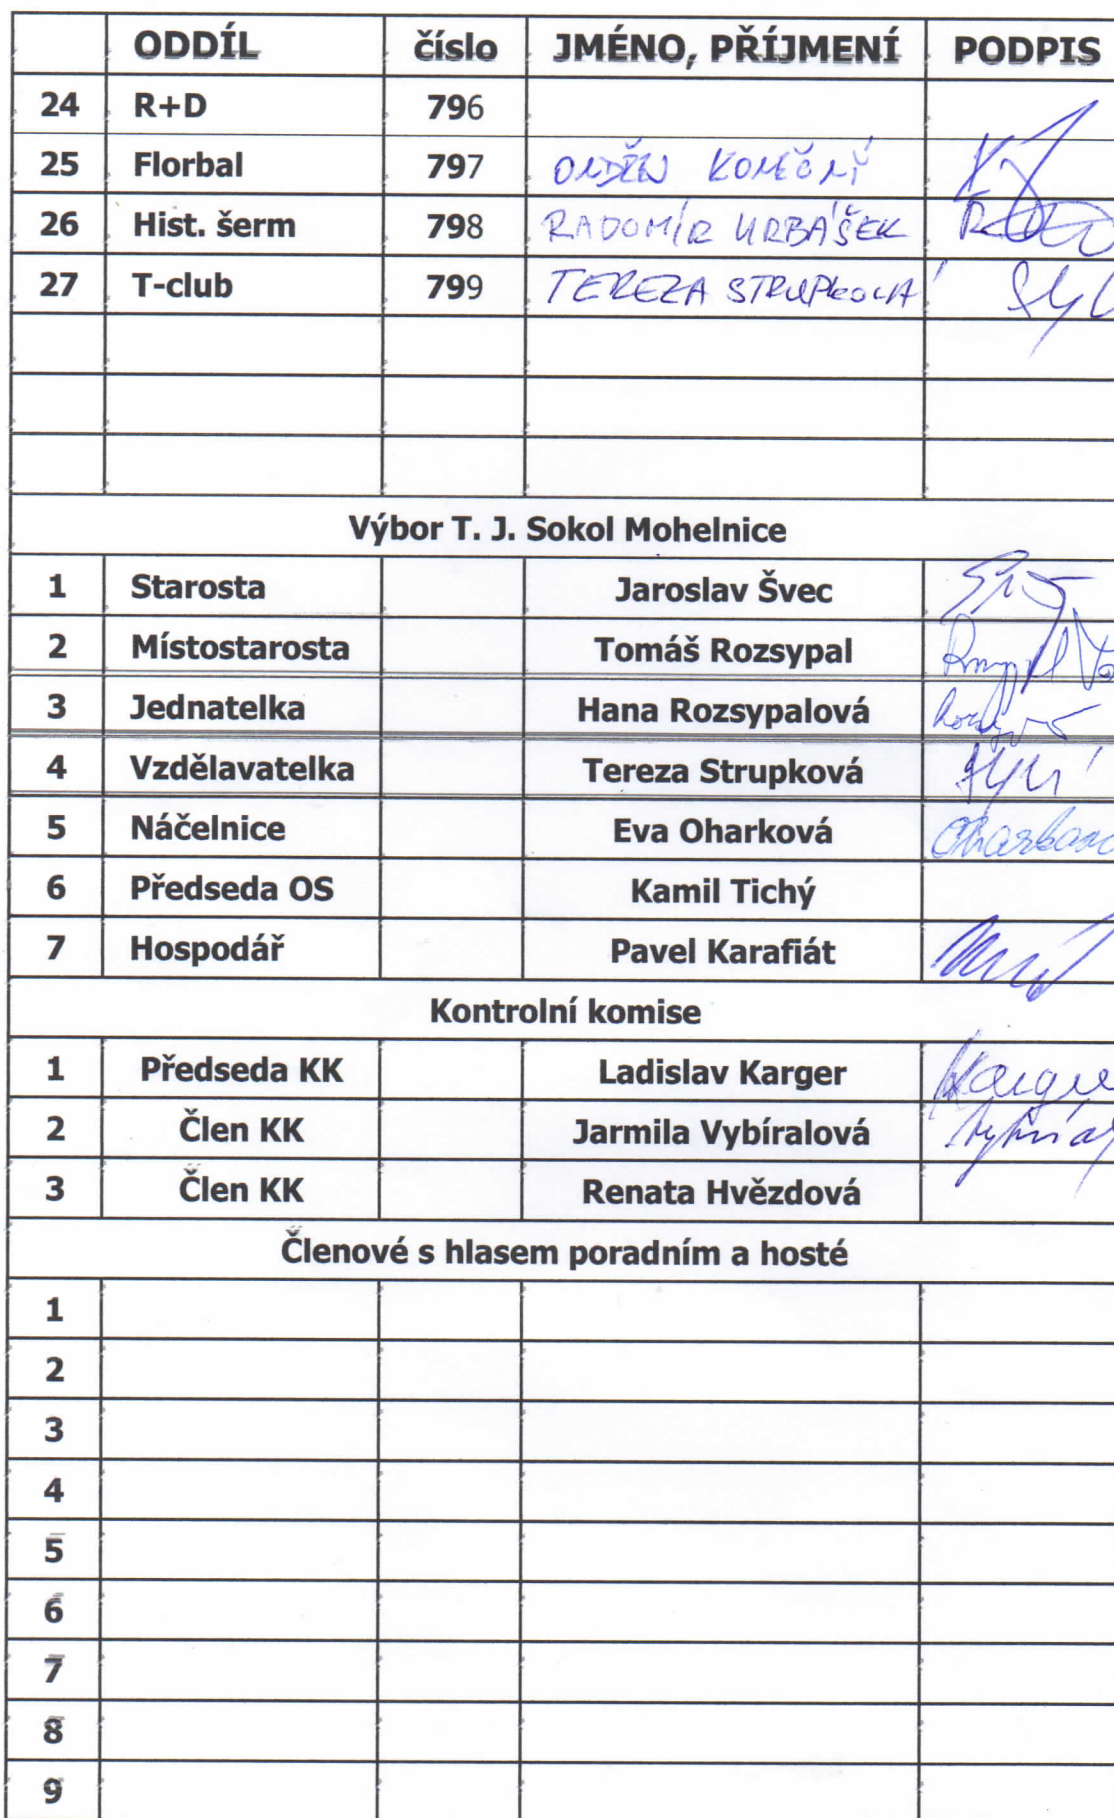 ODDÍL číslo JMÉNO, PŘÍJMENÍ PODPIS
24 R+D 796
25 Florbal 797 KONEČNÝ
26 Hist. šerm 798 RADOMÍR URBÁŠEK
27 T-club 799 TEREZA STRUPKOVÁ
Výbor T. J. Sokol Mohelnice
1 Starosta Jaroslav Švec
2 Místostarosta Tomáš Rozsypal
3 Jednatelka Hana Rozsypalová
4 Vzdělavatelka Tereza Strupková
5 Náčelnice Eva Oharková
6 Předseda OS Kamil Tichý
7 Hospodář Pavel Karafiát
Kontrolní komise
1 Předseda KK Ladislav Karger
2 Člen KK Jarmila Vybíralová
3 Člen KK Renata Hvězdová
Členové s hlasem poradním a hosté
1
2
3
4
5
6
7
8
9